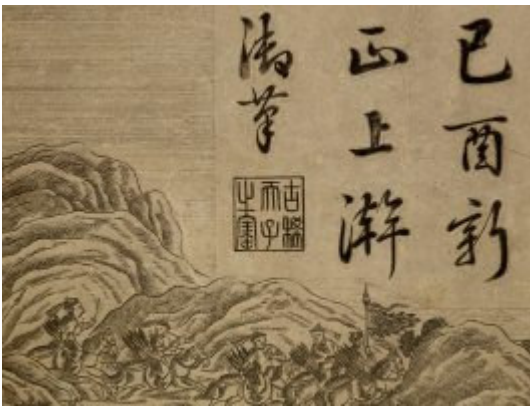 己酉新
正上澣
御筆
古稀
天子
之寶